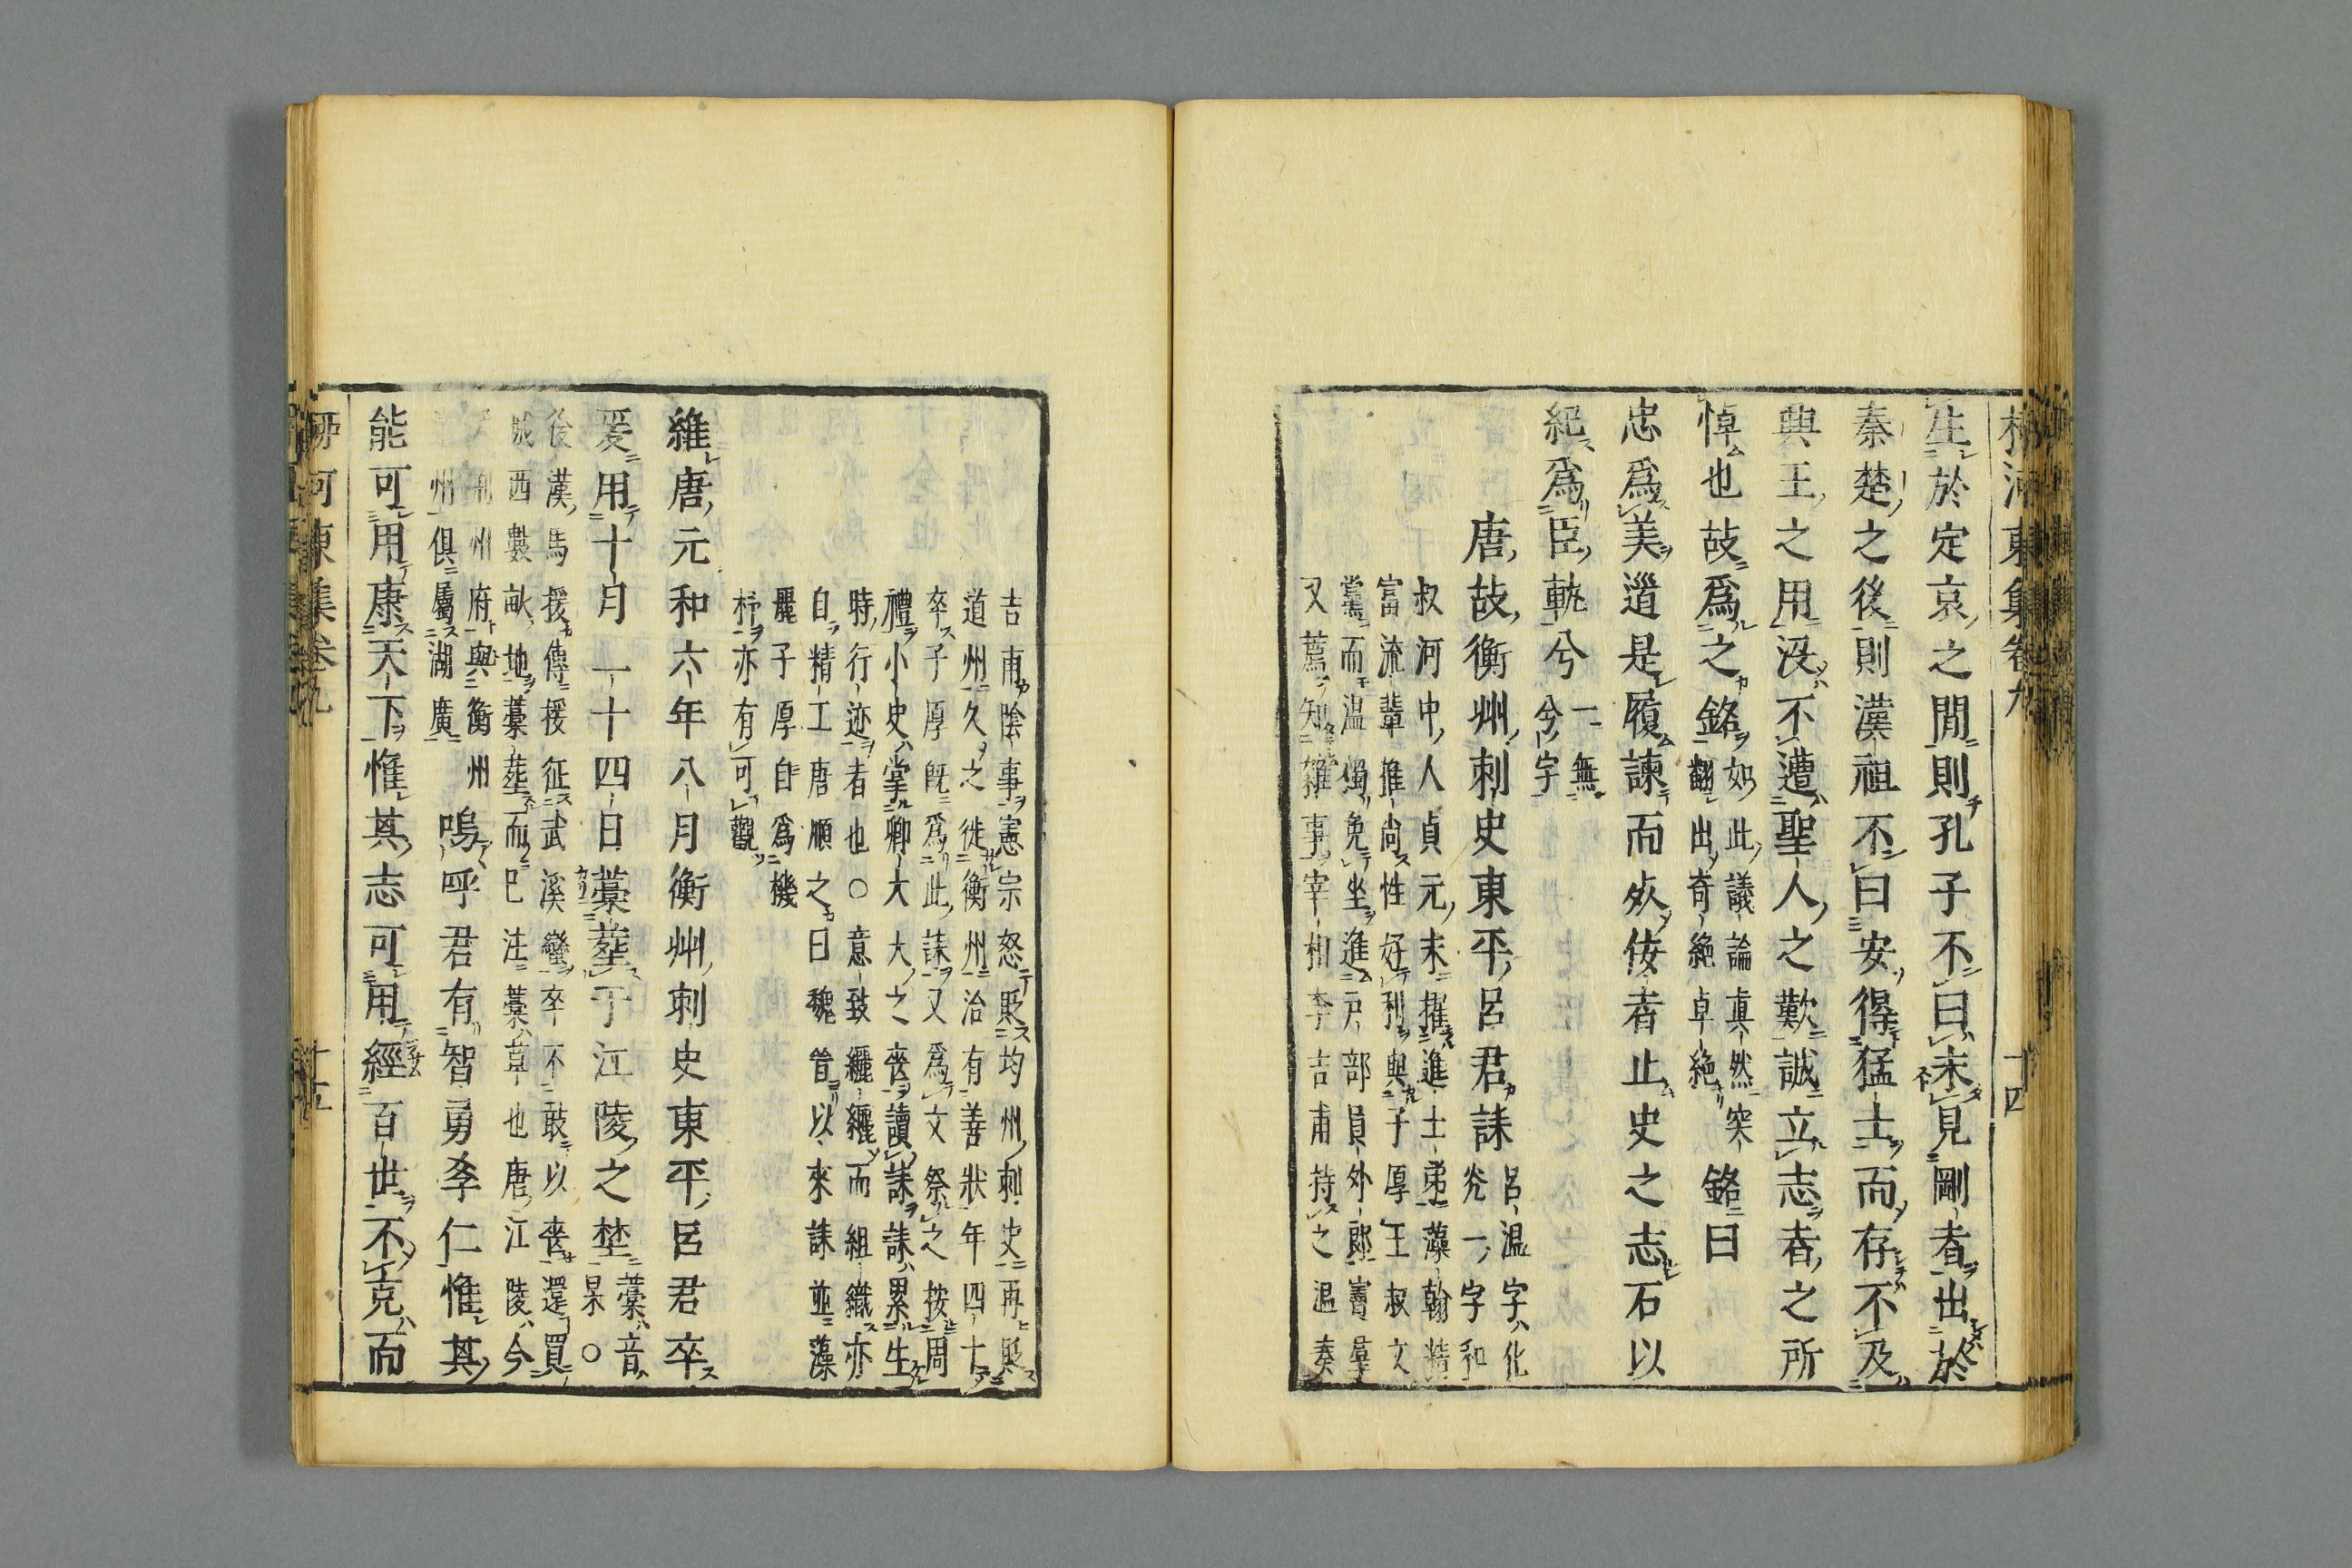 柳河東集卷九 十四
生於定哀之間則孔子不曰未見剛者出於
秦楚之後則漢祖不曰安得猛士而存不及
興王之用沒不遭聖人之歎誠立志者之所
悼也故爲之銘如此議論眞然突翻出奇絶卓絶銘曰
忠爲美道是履諫而死佞者止史之志石以
紀爲臣軌兮一無兮字
唐故衡州刺史東平呂君誄呂温字化光一字和
叔河中人貞元末擢進士弟藻翰精
富流輩推尚性好利與子厚王叔文
黨而温獨免坐進戸部員外郎竇羣
又薦知雜事宰相李吉甫持之温奏
吉甫陰事憲宗怒貶均州刺史再貶
道州久之徙衡州治有善狀年四十
卒子厚旣爲此誄又爲文祭之按周
禮小史掌卿大夫之喪讀誄誄累生
時行迹者也○意致纚纚而組織亦
自精工唐順之曰魏晉以來誄並藻
麗子厚自爲機
杼亦有可觀
維唐元和六年八月衡州刺史東平呂君卒
爰用十月二十四日藁葬于江陵之埜藁音杲○
後漢馬援傳援征武溪蠻卒不敢以喪還買
城西數畝地藁葬而已注藁草也唐江陵今
荊州府與衡州
州俱屬湖廣
嗚呼君有智勇孝仁惟其
能可用康天下惟其志可用經百世不克而
柳河東集卷九 十五